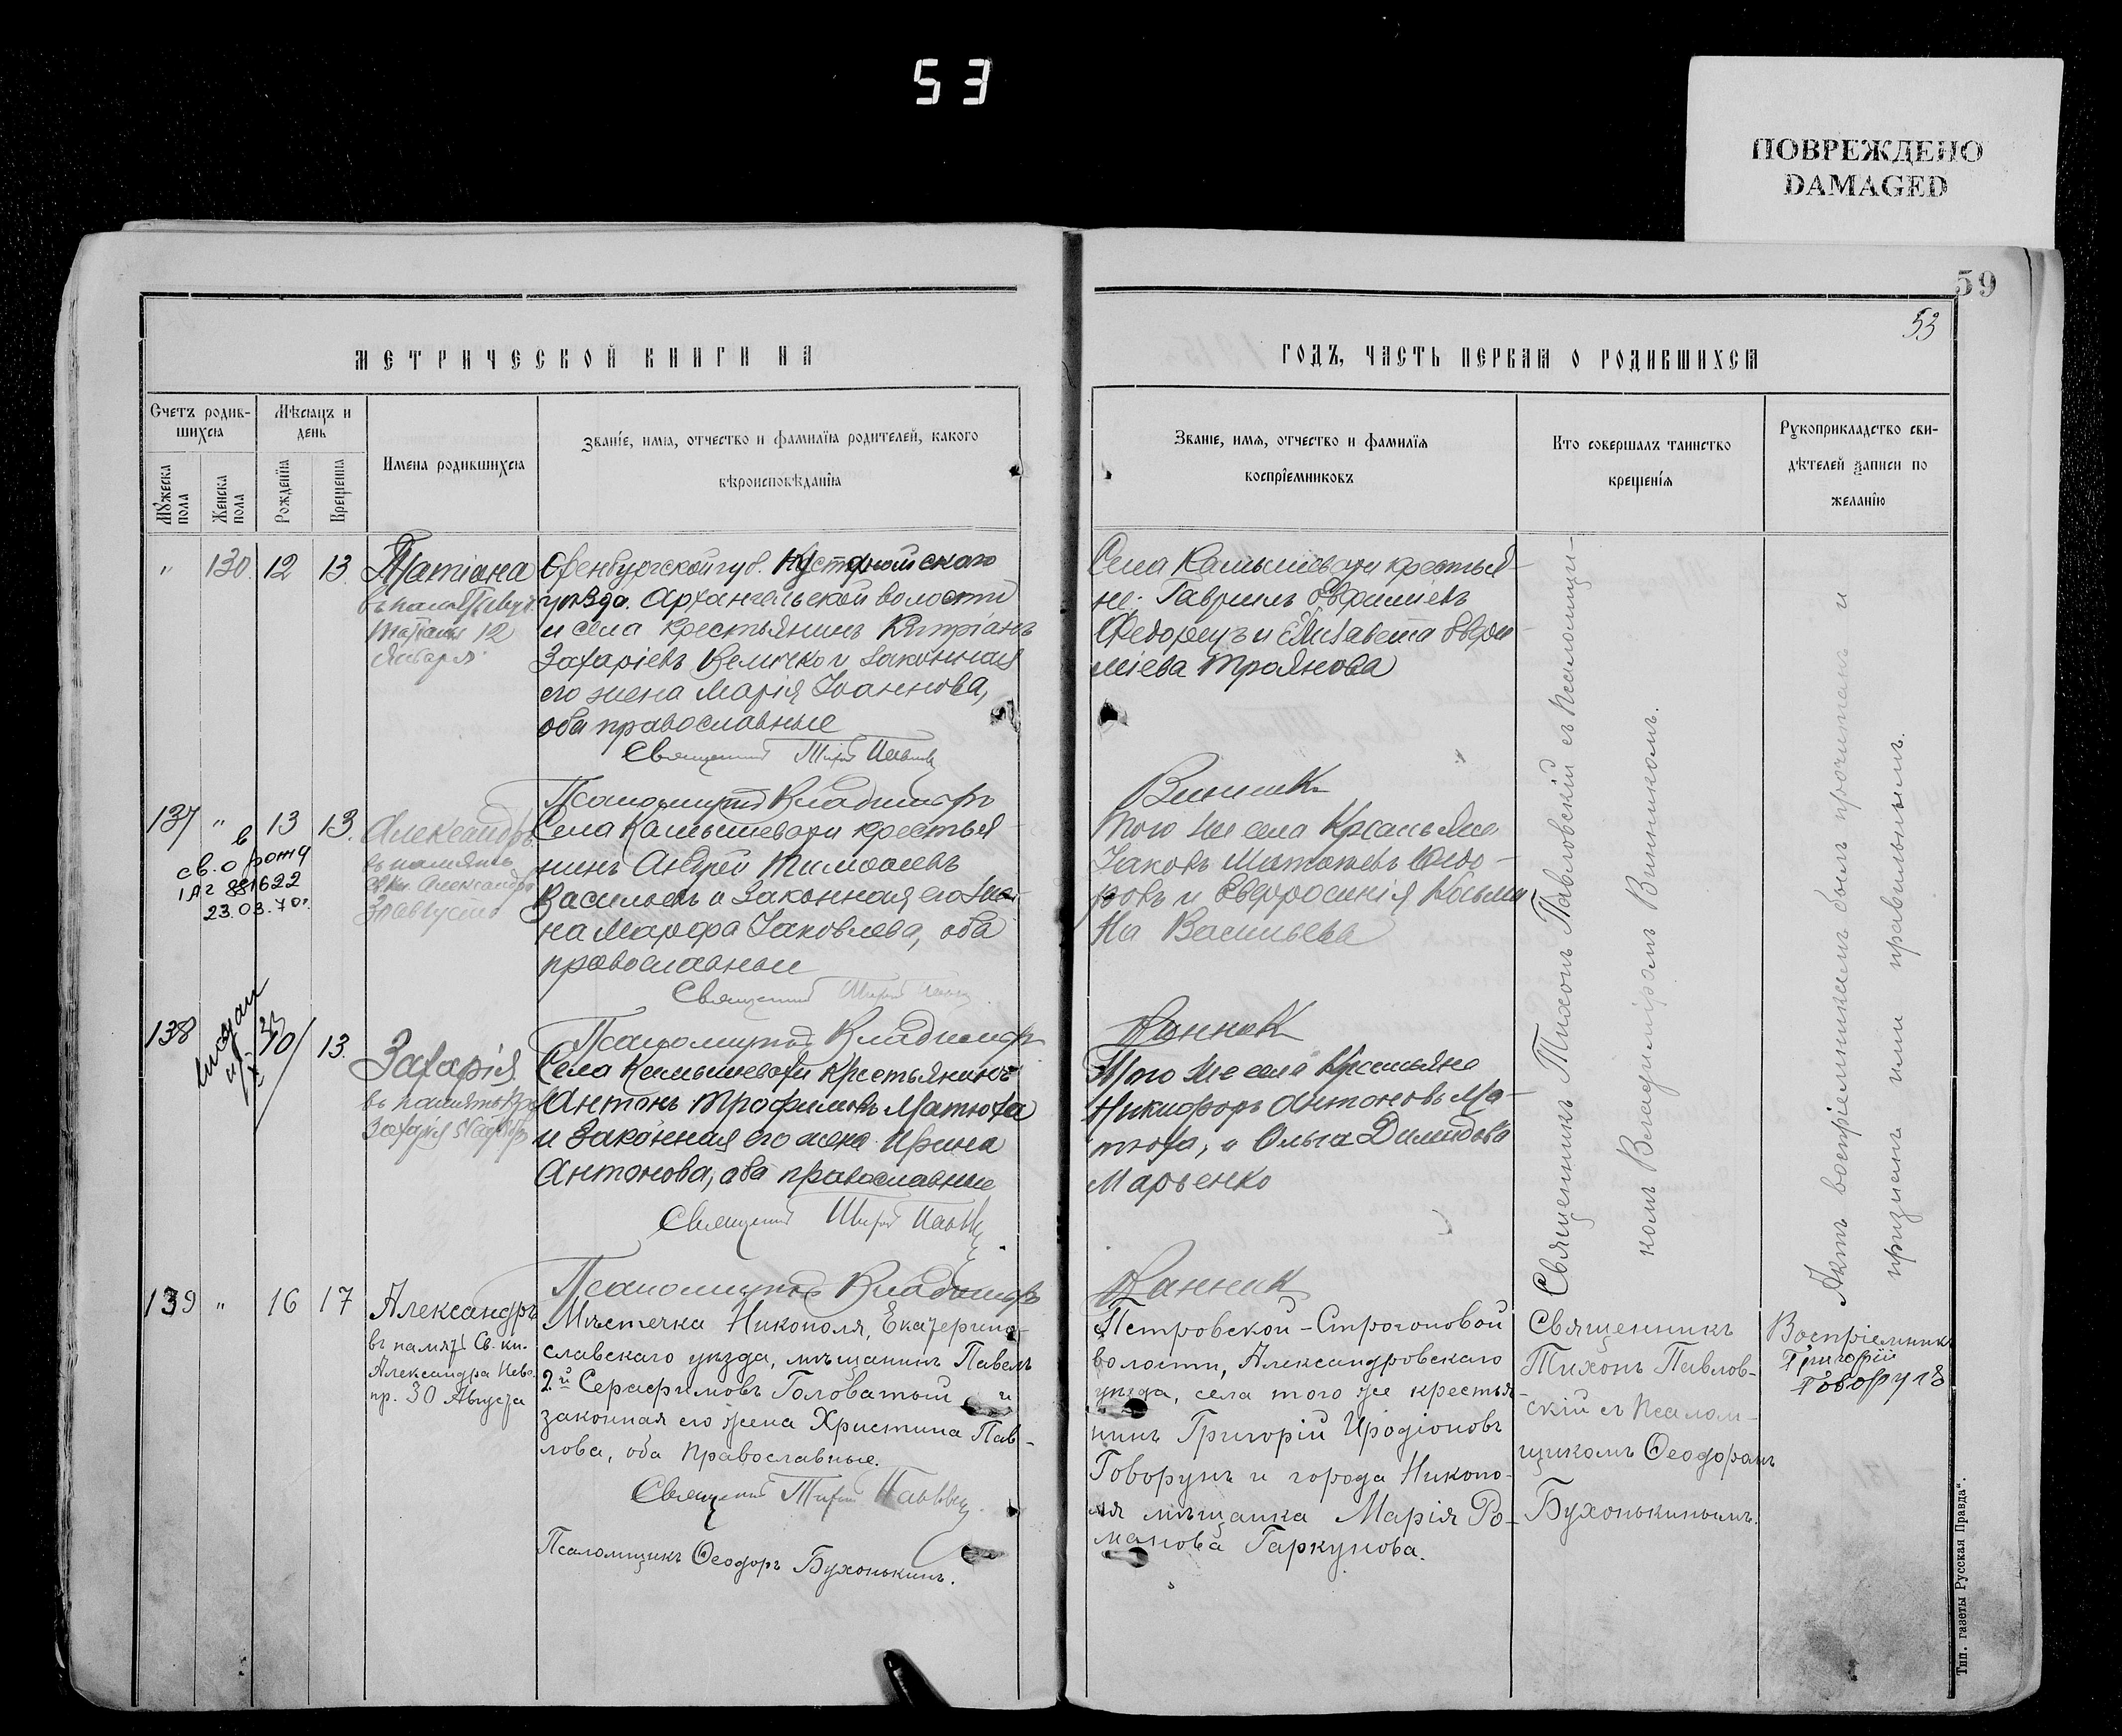 53
ПОВРЕЖДЕНО
DAMAGED
59
53
МЕТРИЧЕСКОЙ КНИГИ НА
ГОДЪ, ЧАСТЬ ПЕРВАЯ О РОДИВШИХСЯ
Счетъ родив-
шихся
Мужеска пола
Женска пола
Мѣсяцъ и
день
Рожденія
Крещенія
Имена родившихся
Званіе, имя, отчество и фамилія родителей, какого
вѣроисповѣданія
Званіе, имя, отчество и фамилія
воспріемниковъ
Кто совершалъ таинство
крещенія
Рукоприкладство сви-
дѣтелей записи по
желанію
" 130. 12 13.
Татіана
12
Января
Оренбургской губ. Кустанайскаго
уѣзда. Архангельской волости
и села крестьянинъ Кипріанъ
Захаріевъ Величко и законная
его жена Марія Іоаннова,
оба православные
Священникъ Тихонъ Павловскій
Псаломщикъ Владиміръ
Винникъ
Села Камышевахи крестья-
не: Гавриилъ Евфиміевъ
Федорецъ и Елисавета Евфи-
міева Троянова
137 " 13 13.
в
св. о рожд
1АГ 881622
23.03.70г.
Александръ
въ память
Св. Кн. Александра
30 Августа
Села Камышевахи крестья-
нинъ Андрей Тимофеевъ
Васильевъ и законная его же-
на Марфа Іаковлева, оба
православные
Священникъ Тихонъ Павловскій
Псаломщикъ Владиміръ
Винникъ
Того же села Крестьяне
Іаковъ Федо-
ровъ и Евфросинія Косьми-
на Васильева
138 10 13.
Захарія
въ память Пр.
Захарія 5 Сентября
Села Камышевахи крестьянинъ
Антонъ Трофимовъ Матюха
и законная его жена Ирина
Антонова, оба православные
Священникъ Тихонъ Павловскій
Псаломщикъ Владиміръ
Винникъ
Того же села Крестьяне
Никифоръ Антоновъ Ма-
тюха, и Ольга Димидова
Марченко
Священникъ Тихонъ Павловскій съ Псаломщи-
комъ Владиміромъ Винникомъ.
Актъ воспріемникамъ былъ прочитанъ и
признанъ ими правильнымъ.
139 " 16 17
Александръ
въ память Св. кн.
Александра Нев.
пр. 30 Августа
Мѣстечка Никополя, Екатерино-
славскаго уѣзда, мѣщанинъ Павелъ
2-й Серафимовъ Головатый и
законная его жена Христина Пав-
лова, оба Православные.
Священникъ Тихонъ Павловскій
Псаломщикъ Ѳеодоръ Бухонькинъ.
Петровской-Строгоновой
волости, Александровскаго
уѣзда, села того же крестья-
нинъ Григорій Иродіоновъ
Говорунъ и города Никопо-
ля мѣщанка Марія Ро-
манова Гаркунова.
Священникъ
Тихонъ Павлов-
скій съ Псалом-
щикомъ Ѳеодоромъ
Бухонькинымъ.
Воспріемникъ
Григорій
Говорунъ
Тип. газеты „Русская Правда“.